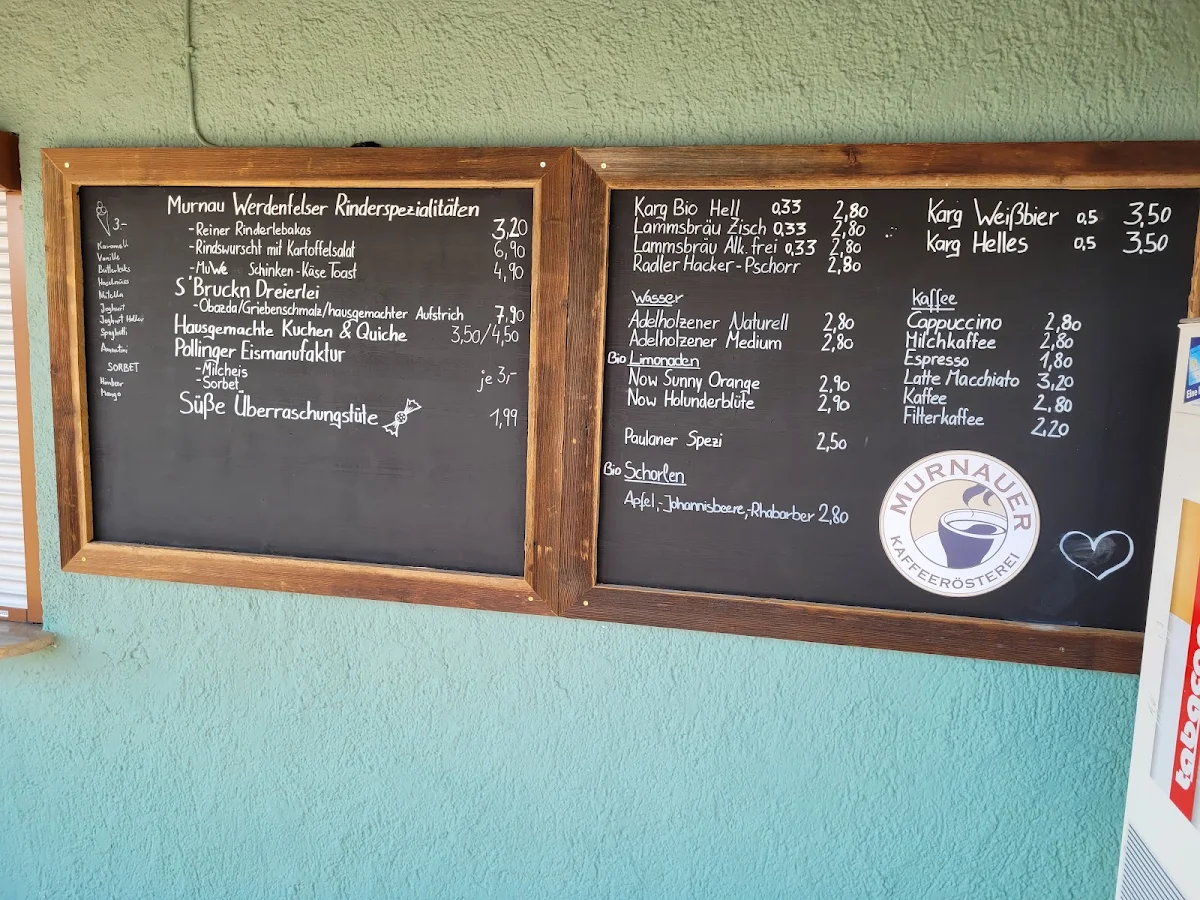 3.-
Karamell
Vanille
Butterkeks
Haselnuss
Nutella
Joghurt
Spaghetti
Amarettini
SORBET
Himbeer
Mango
Murnau Werdenfelser Rinderspezialitäten
-Reiner Rinderlebakas 3,20
-Rindswurscht mit Kartoffelsalat 6,90
-MuWe Schinken-Käse Toast 4,90
S'Bruckn Dreierlei
-Obazda/Griebenschmalz/hausgemachter Aufstrich 7,90
Hausgemachte Kuchen & Quiche 3,50/4,50
Pollinger Eismanufaktur
-Milcheis
-Sorbet je 3,-
Süße Überraschungstüte 1,99
Karg Bio Hell 0,33 2,80
Lammsbräu Zisch 0,33 2,80
Lammsbräu Alk.frei 0,33 2,80
Radler Hacker-Pschorr 2,80
Wasser
Adelholzener Naturell 2,80
Adelholzener Medium 2,80
Bio Limonaden
Now Sunny Orange 2,90
Now Holunderblüte 2,90
Paulaner Spezi 2,50
Bio Schorlen
Apfel,-Johannisbeere,-Rhabarber 2,80
Karg Weißbier 0,5 3,50
Karg Helles 0,5 3,50
Kaffee
Cappuccino 2,80
Milchkaffee 2,80
Espresso 1,80
Latte Macchiato 3,20
Kaffee 2,80
Filterkaffee 2,20
MURNAUER
KAFFEERÖSTEREI